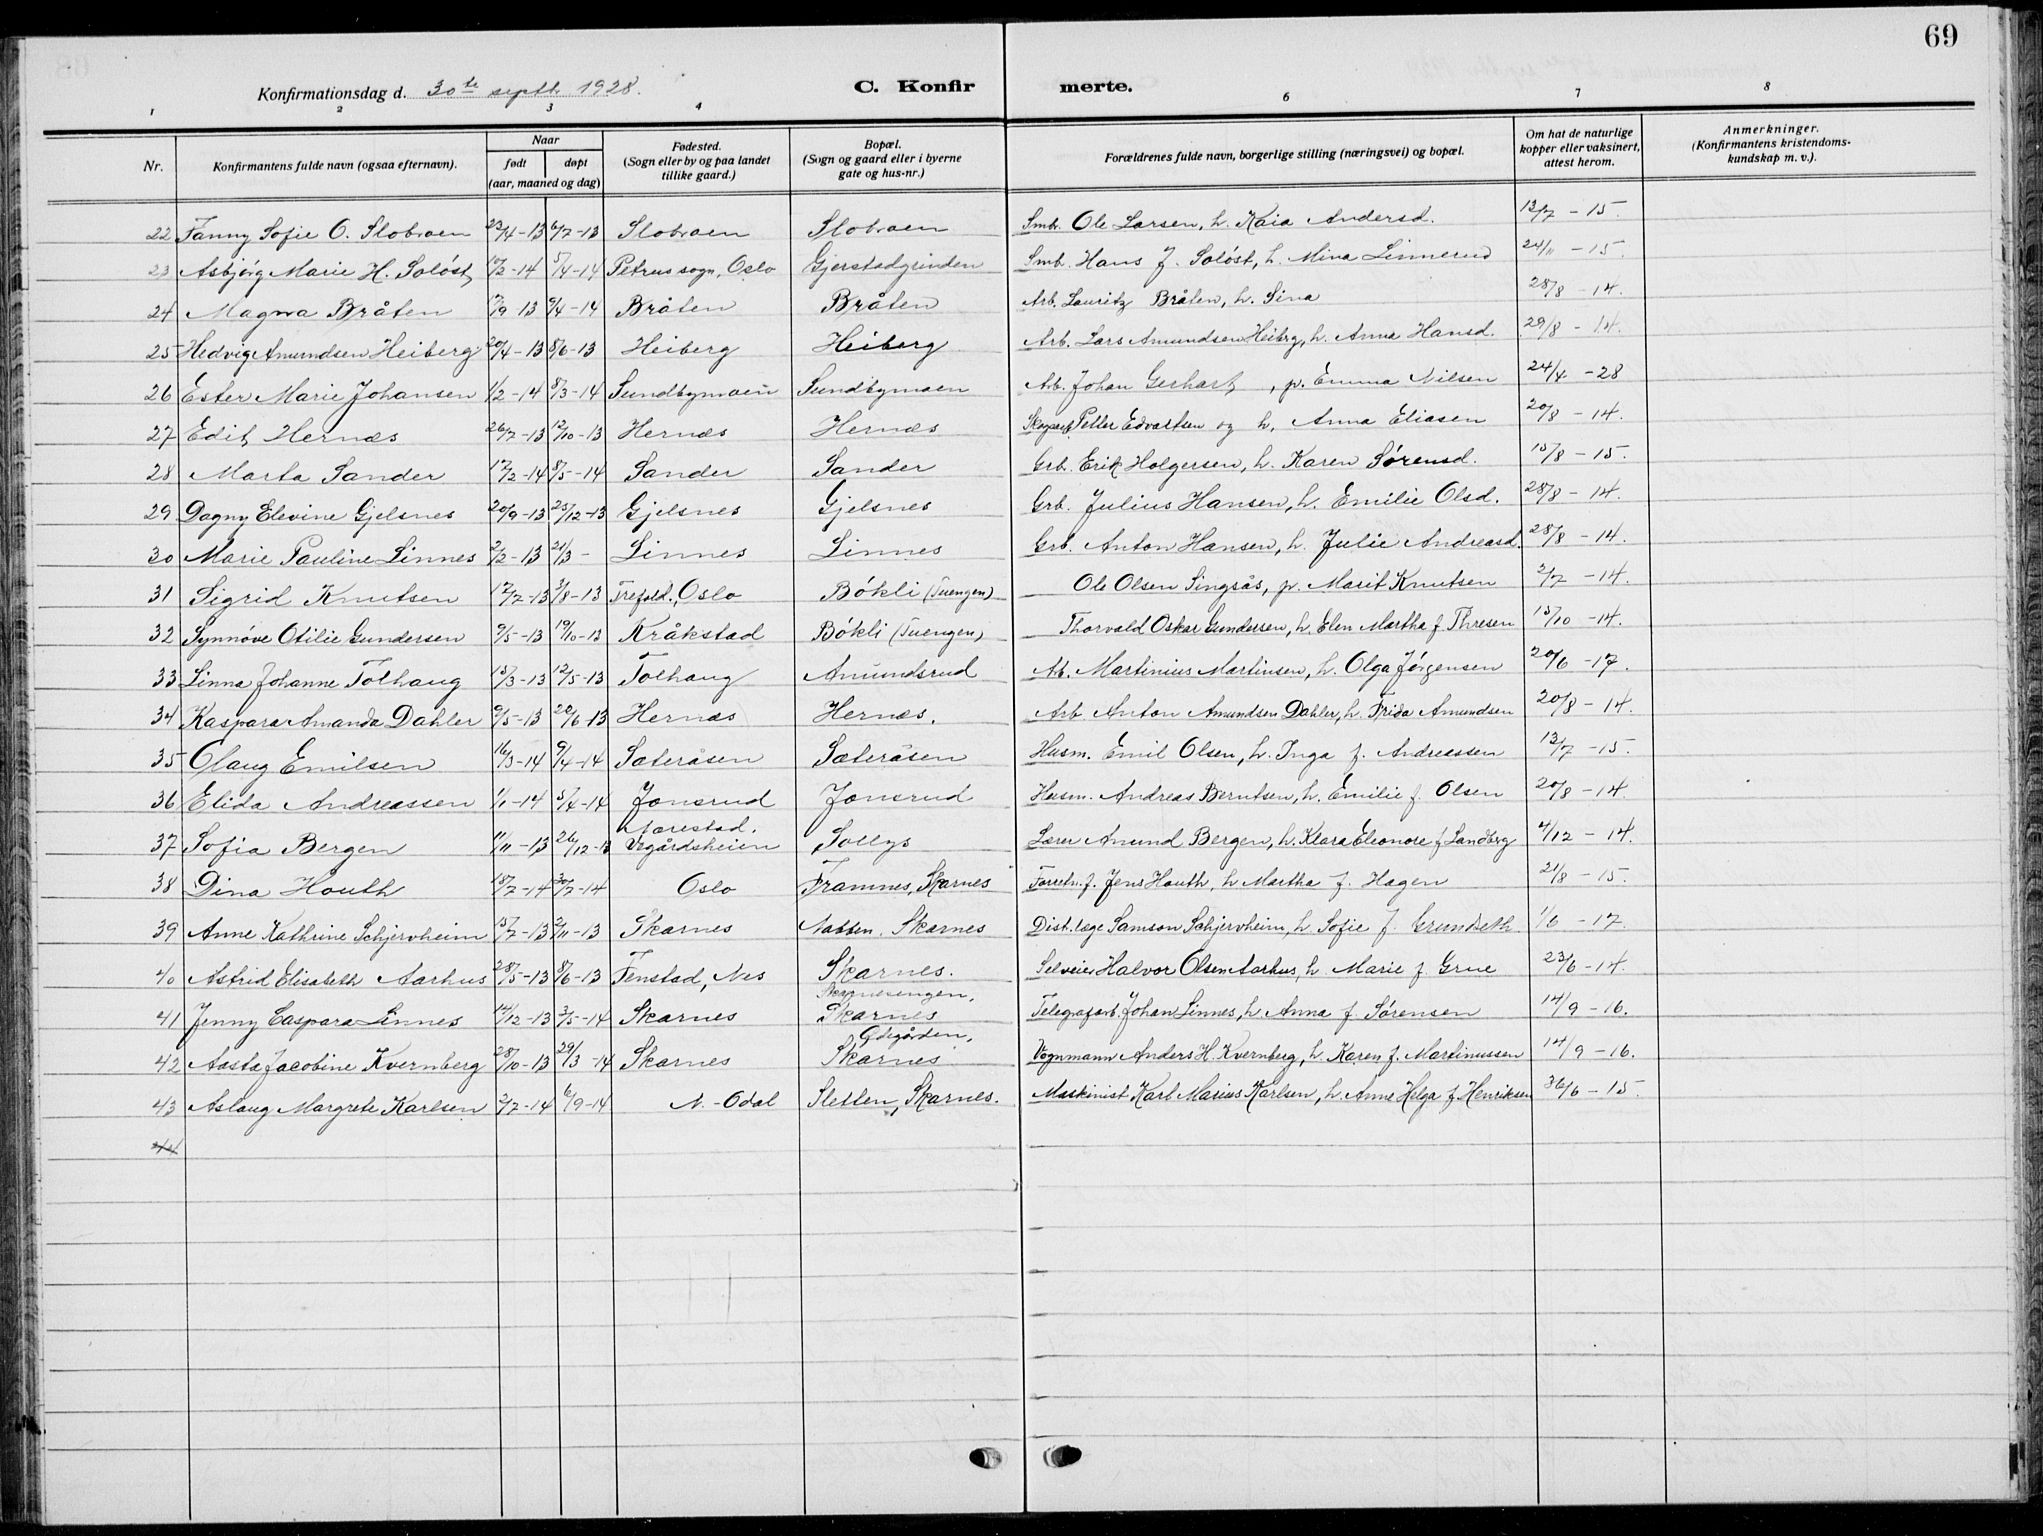 69
Konfirmationsdag d. 30te septb. 1928. C. Konfir merte.
1 2 3 4 6 7 8
Nr. Konfirmantens fulde navn (ogsaa efternavn). Naar født døpt (aar, maaned og dag) Fødested. (Sogn eller by og paa landet tillike gaard.) Bopæl. (Sogn og gaard eller i byerne gate og hus-nr.) Forældrenes fulde navn, borgerlige stilling (næringsvei) og bopæl. Om hat de naturlige kopper eller vaksinert, attest herom. Anmerkninger. (Konfirmantens kristendoms-kundskap m. v.).
22 Fanny Sofie O. Slobraen 23/4-13 6/7-13 Slobraen Slobraen Smb. Ole Larsen, h. Kaia Andersd. 13/7 - 15.
23 Asbjørg Marie H. Soløst 10/2-14 5/4-14 Petrus sogn, Oslo Gjerstadgrinden Smb. Hans J. Soløst, h. Mina Linnerud 24/11 - 15.
24 Magna Bråten 17/9 13 9/4-14 Bråten Bråten Arb. Lauritz Bråten, h. Lina 28/8 - 14.
25 Hedvig Amundsen Heiberg 20/4-13 8/6-13 Heiberg Heiberg Arb. Lars Amundsen Heibrg, h. Anna Hansd. 29/8 - 14.
26 Ester Marie Johansen 1/2-14 8/3-14 Sundbymoen Sundbymoen Arb. Johan Gerhart, p. Emma Nilsen 24/4 - 28
27 Edit Hernæs 26/7-13 12/10-13 Hernæs Hernæs Petter Edvartsen og h. Anna Eliasen 20/8 - 14.
28 Marta Sander 17/2-14 8/5-14 Sander Sander Grb. Erik Holgersen, h. Karen Sørensd. 15/8 - 15.
29 Dagny Elevine Gjelsnes 20/9-13 25/12-13 Gjelsnes Gjelsnes Grb. Julius Hansen, h. Emilie Olsd. 28/8 - 14.
30 Marie Pauline Linnes 2/2-13 21/3- Linnes Linnes Grb. Anton Hansen, h. Julie Andreasd. 28/8 - 14.
31 Sigrid Knutsen 17/7-13 31/8-13 Trefold., Oslo Bøkli (Tuengen) Ole Olsen Singsås, p. Marit Knutsen 2/7 - 14.
32 Synnøve Otilie Gundersen 9/5-13 19/10-13 Kråkstad Bøkli (Tuengen) Thorvald Oskar Gundersen, h. Elen Martha f. Thresen 15/10 - 14.
33 Linna Johanne Tolhaug 15/3-13 12/5-13 Tolhaug Amundsrud Ab. Martinius Martinsen, h. Olga Jørgensen 20/6 - 17.
34 Kaspara Amanda Dahler 9/5-13 20/6-13 Hernæs Hernæs. Arb Anton Amundsen Dahler, h. Frida Amundsen 20/8 - 14.
35 Olaug Emilsen 16/3-14 9/4-14 Sæteråsen Sæteråsen Husm. Emil Olsen, h. Inga f. Andreassen 13/7 - 15.
36 Elida Andreassen 1/1-14 5/4-14 Jonsrud Jonsrud Husm. Andreas Berntsen, h. Emilie f. Olsen 20/8 - 14.
37 Sofia Bergen 11/11-13 26/12-13 Vegårdsheien Sollys Lærer Amund Bergen, h. Klara Eleonore f Landbrg 4/12 - 14.
38 Dina Houth 18/2-14 30/7-14 Oslo Framnes, Skarnes Forretn. f. Jens Houth, h Martha f. Hagen 21/8 - 15.
39 Anne Kathrine Schjervheim 15/7-13 2/11-13 Skarnes Nabben, Skarnes Dist. læge Samson Schjervheim, h. Sofie f. Grundseth. 1/6 - 17.
40 Astrid Elisabeth Aarhus 28/5-13 8/6-13 Fenstad, Nes Skarnes. Selveier Halvor Olsen Aarhus, h. Marie f. Grue 23/6 - 14.
41 Jenny Caspara Linnes 14/12-13 3/5-14 Skarnes Skarnesengen, Skarnes Telegrafarb. Johan Linnes, h. Anna f. Sørensen 14/9 - 16.
42 Aasta Jacobine Kvernberg 28/10-13 29/3-14 Skarnes Ødegården, Skarnes Vognmann Anders H. Kvernberg, h. Karen f. Martinussen 14/9 - 16.
43 Aslaug Margrete Karlsen 2/7-14 6/9-14 N. Odal Sletten, Skarnes. Maskinist Karl Marius Karlsen, h. Anne Helga f Henriksen 30/6 - 15.
44